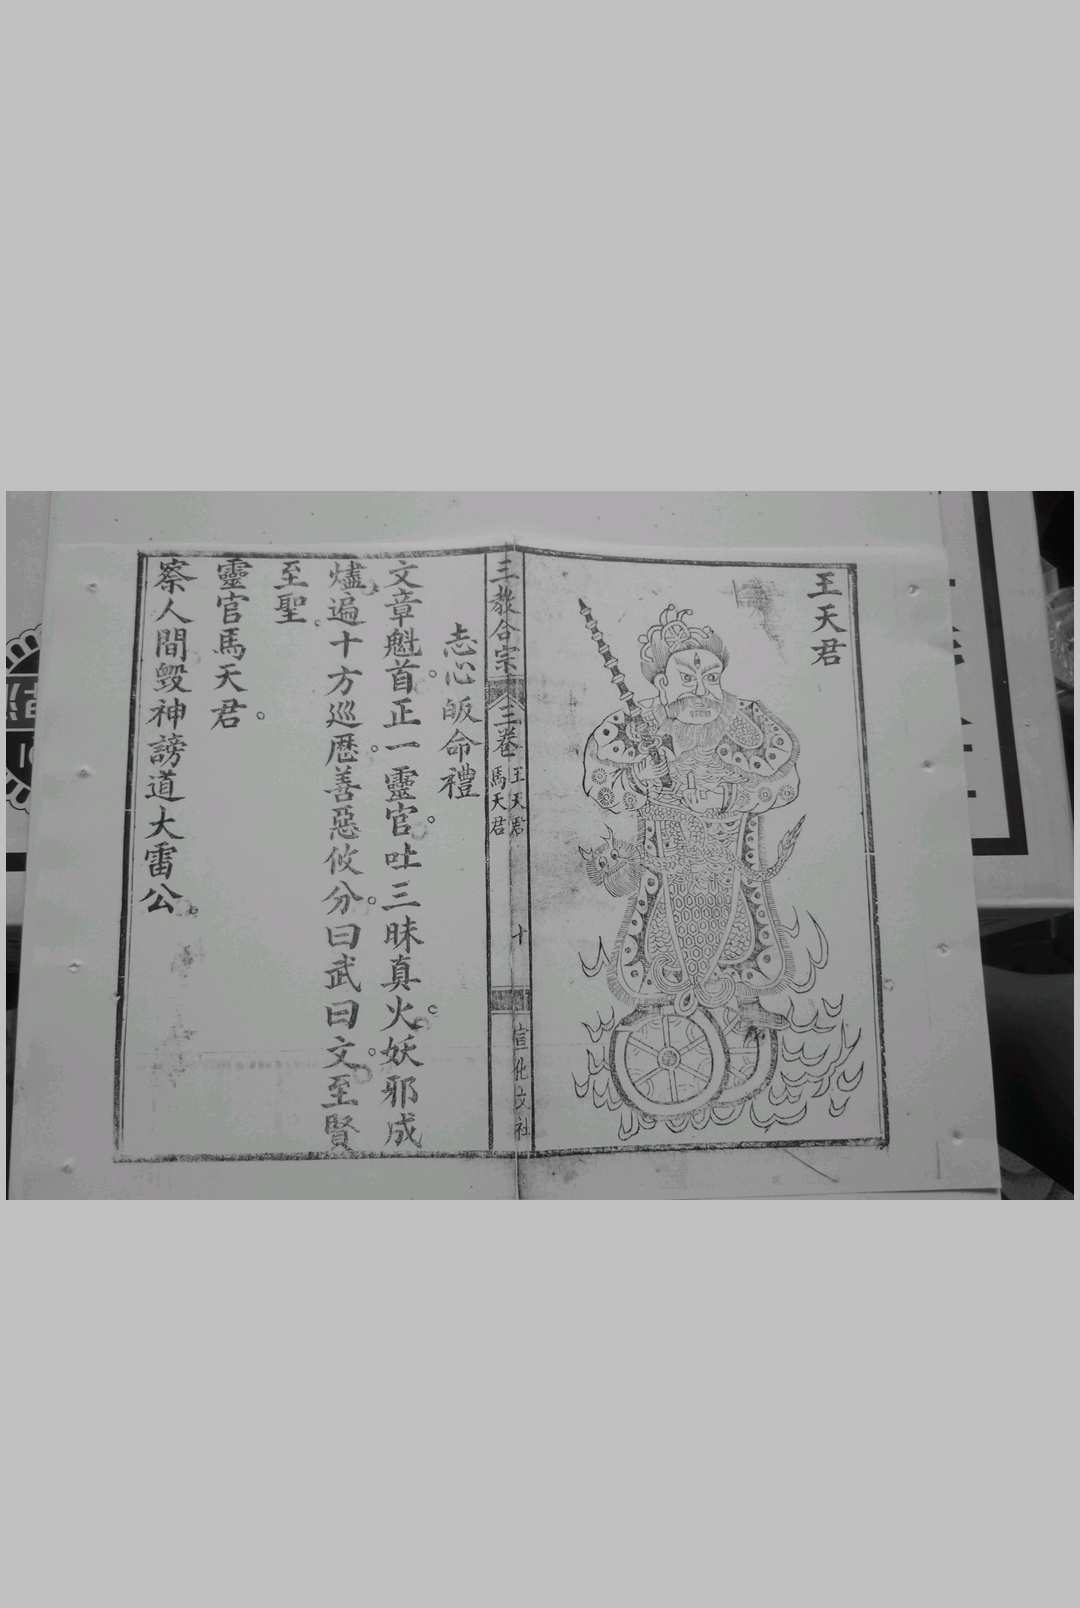 王天君
三教合宗
三卷
王天君
馬天君
十
宣化文社
志心皈命禮
文章魁首。正一靈官。吐三昧真火。妖邪成
燼。遍十方巡歷。善惡攸分。曰武曰文。至賢
至聖。
靈官馬天君。
察人間毀神謗道大雷公。